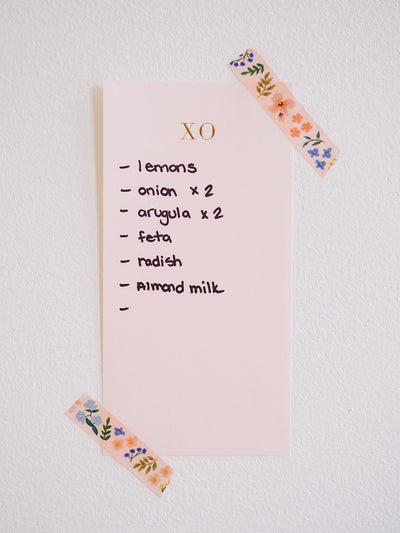 XO
- lemons
- onion x 2
- arugula x 2
- feta
- radish
- Almond milk
-